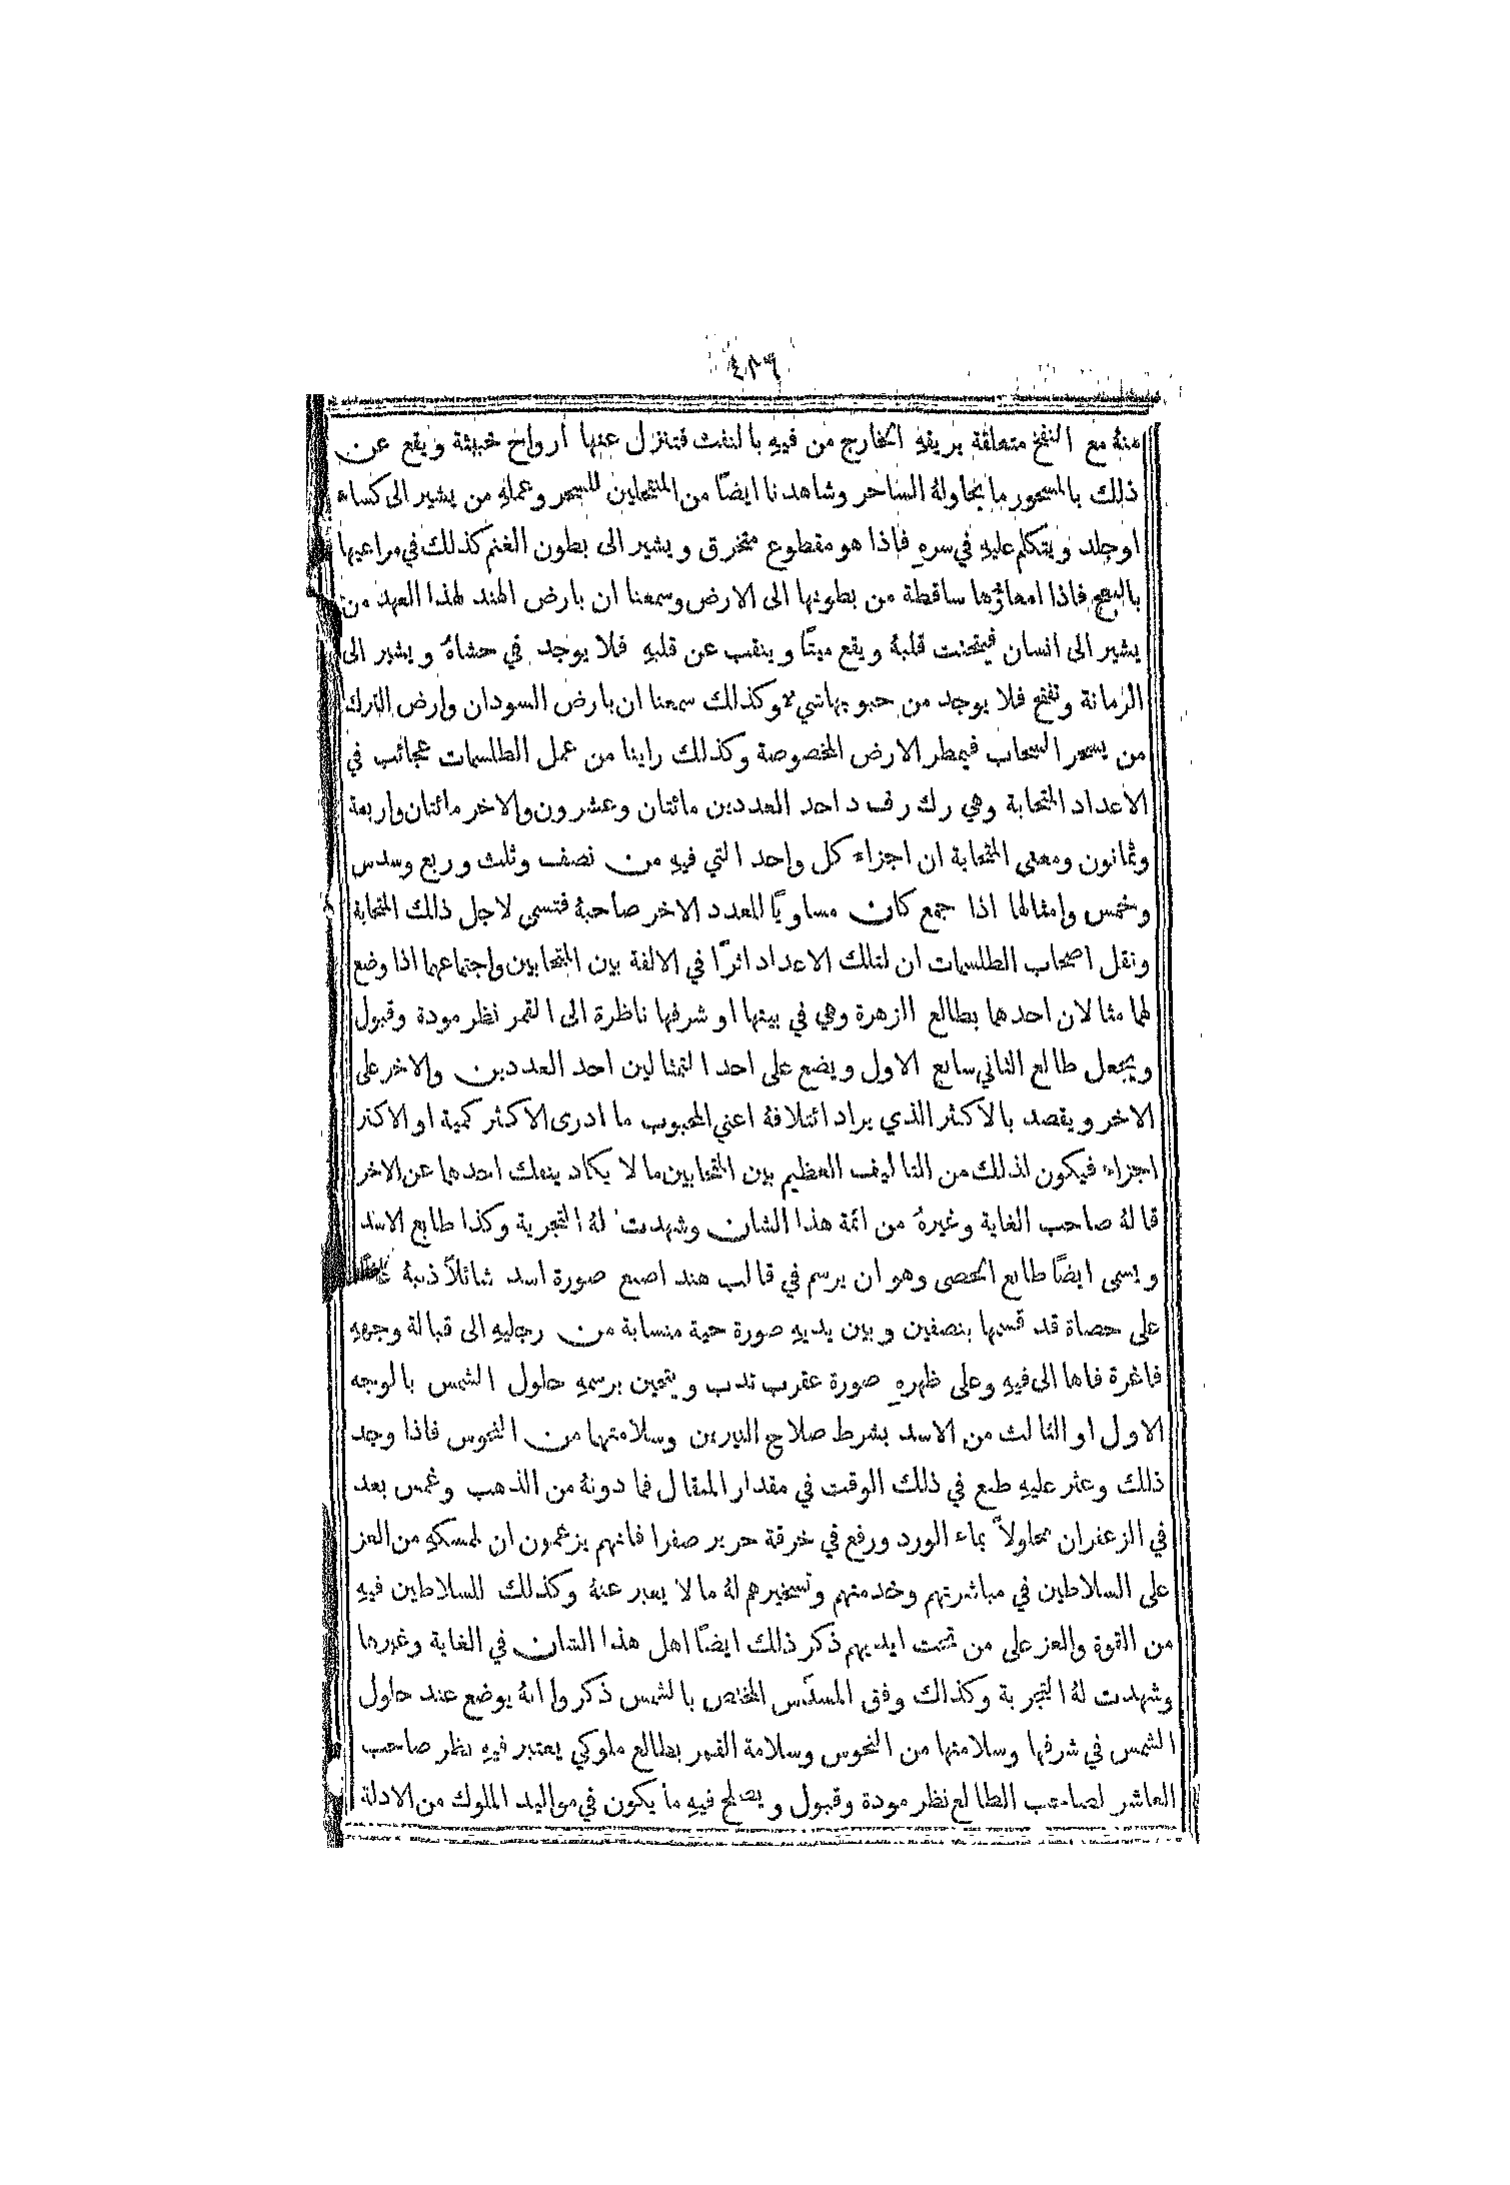 ٤٣٦
منهُ مع النفخ متعلقة بريقهِ الخارج من فيهِ بالنفث فتنزل عنها ارواح خبيثة ويقع عن
ذلك بالمسحور ما يحاولهُ الساحر وشاهدنا ايضًا من المنتحلين للسحر وعملهِ من يشير الى كساء
او جلد ويتكلم عليهِ في سرهِ فاذا هو مقطوع متخرق ويشير الى بطون الغنم كذلك في مراعيها
بالبعج فاذا امعاؤها ساقطة من بطونها الى الارض وسمعنا ان بارض الهند لهذا العهد من
يشير الى انسان فيتحتت قلبهُ ويقع ميتًا وينقب عن قلبهِ فلا يوجد في حشاهُ ويشير الى
الرمانة وتفتح فلا يوجد من حبوبها شيء وكذلك سمعنا ان بارض السودان وارض الترك
من يسحر السحاب فيمطر الارض المخصوصة وكذلك راينا من عمل الطلسمات عجائب في
الاعداد المتحابة وهي رك رف د احد العددين مائتان وعشرون والاخر مائتان واربعة
وثمانون ومعنى المتحابة ان اجزاء كل واحد التي فيهِ من نصف وثلث وربع وسدس
وخمس وامثالها اذا جمع كان مساويًا للعدد الاخر صاحبهُ فتسمى لاجل ذلك المتحابة
ونقل اصحاب الطلسمات ان لتلك الاعداد اثرًا في الالفة بين المتحابين واجتماعهما اذا وضع
لهما مثالان احدهما بطالع الزهرة وهي في بيتها او شرفها ناظرة الى القمر نظر مودة وقبول
ويجعل طالع الثاني سابع الاول ويضع على احد التمثالين احد العددين والاخر على
الاخر ويقصد بالاكثر الذي يراد ائتلافهُ اعني المحبوب ما ادرى الاكثر كمية او الاكثر
اجزاء فيكون لذلك من التاليف العظيم بين المتحابين ما لا يكاد ينفك احدهما عن الاخر
قالهُ صاحب الغاية وغيرهُ من ائمة هذا الشان وشهدت لهُ التجربة وكذا طابع الاسد
ويسمى ايضًا طابع الحصى وهو ان يرسم في قالب هند اصبع صورة اسد شائلاً ذنبهُ عاضًا
على حصاة قد قسمها بنصفين وبين يديهِ صورة حية منسابة من رجليهِ الى قبالة وجههِ
فاغرة فاها الى فيهِ وعلى ظهرهِ صورة عقرب تدب ويتحين برسمهِ حلول الشمس بالوجه
الاول او الثالث من الاسد بشرط صلاح النيرين وسلامتهما من النحوس فاذا وجد
ذلك وعثر عليهِ طبع في ذلك الوقت في مقدار المثقال فما دونهُ من الذهب وغمس بعد
في الزعفران محلولاً بماء الورد ورفع في خرقة حرير صفرا فانهم يزعمون ان لممسكهِ من العز
على السلاطين في مباشرتهم وخدمتهم وتسخيرهم لهُ ما لا يعبر عنهُ وكذلك للسلاطين فيهِ
من القوة والعز على من تحت ايديهم ذكر ذلك ايضًا اهل هذا الشان في الغاية وغيرها
وشهدت لهُ التجربة وكذلك وفق المسدّس المختص بالشمس ذكروا انهُ يوضع عند حلول
الشمس في شرفها وسلامتها من النحوس وسلامة القمر بطالع ملوكي يعتبر فيهِ نظر صاحب
العاشر لصاحب الطالع نظر مودة وقبول ويصلح فيهِ ما يكون في مواليد الملوك من الادلة